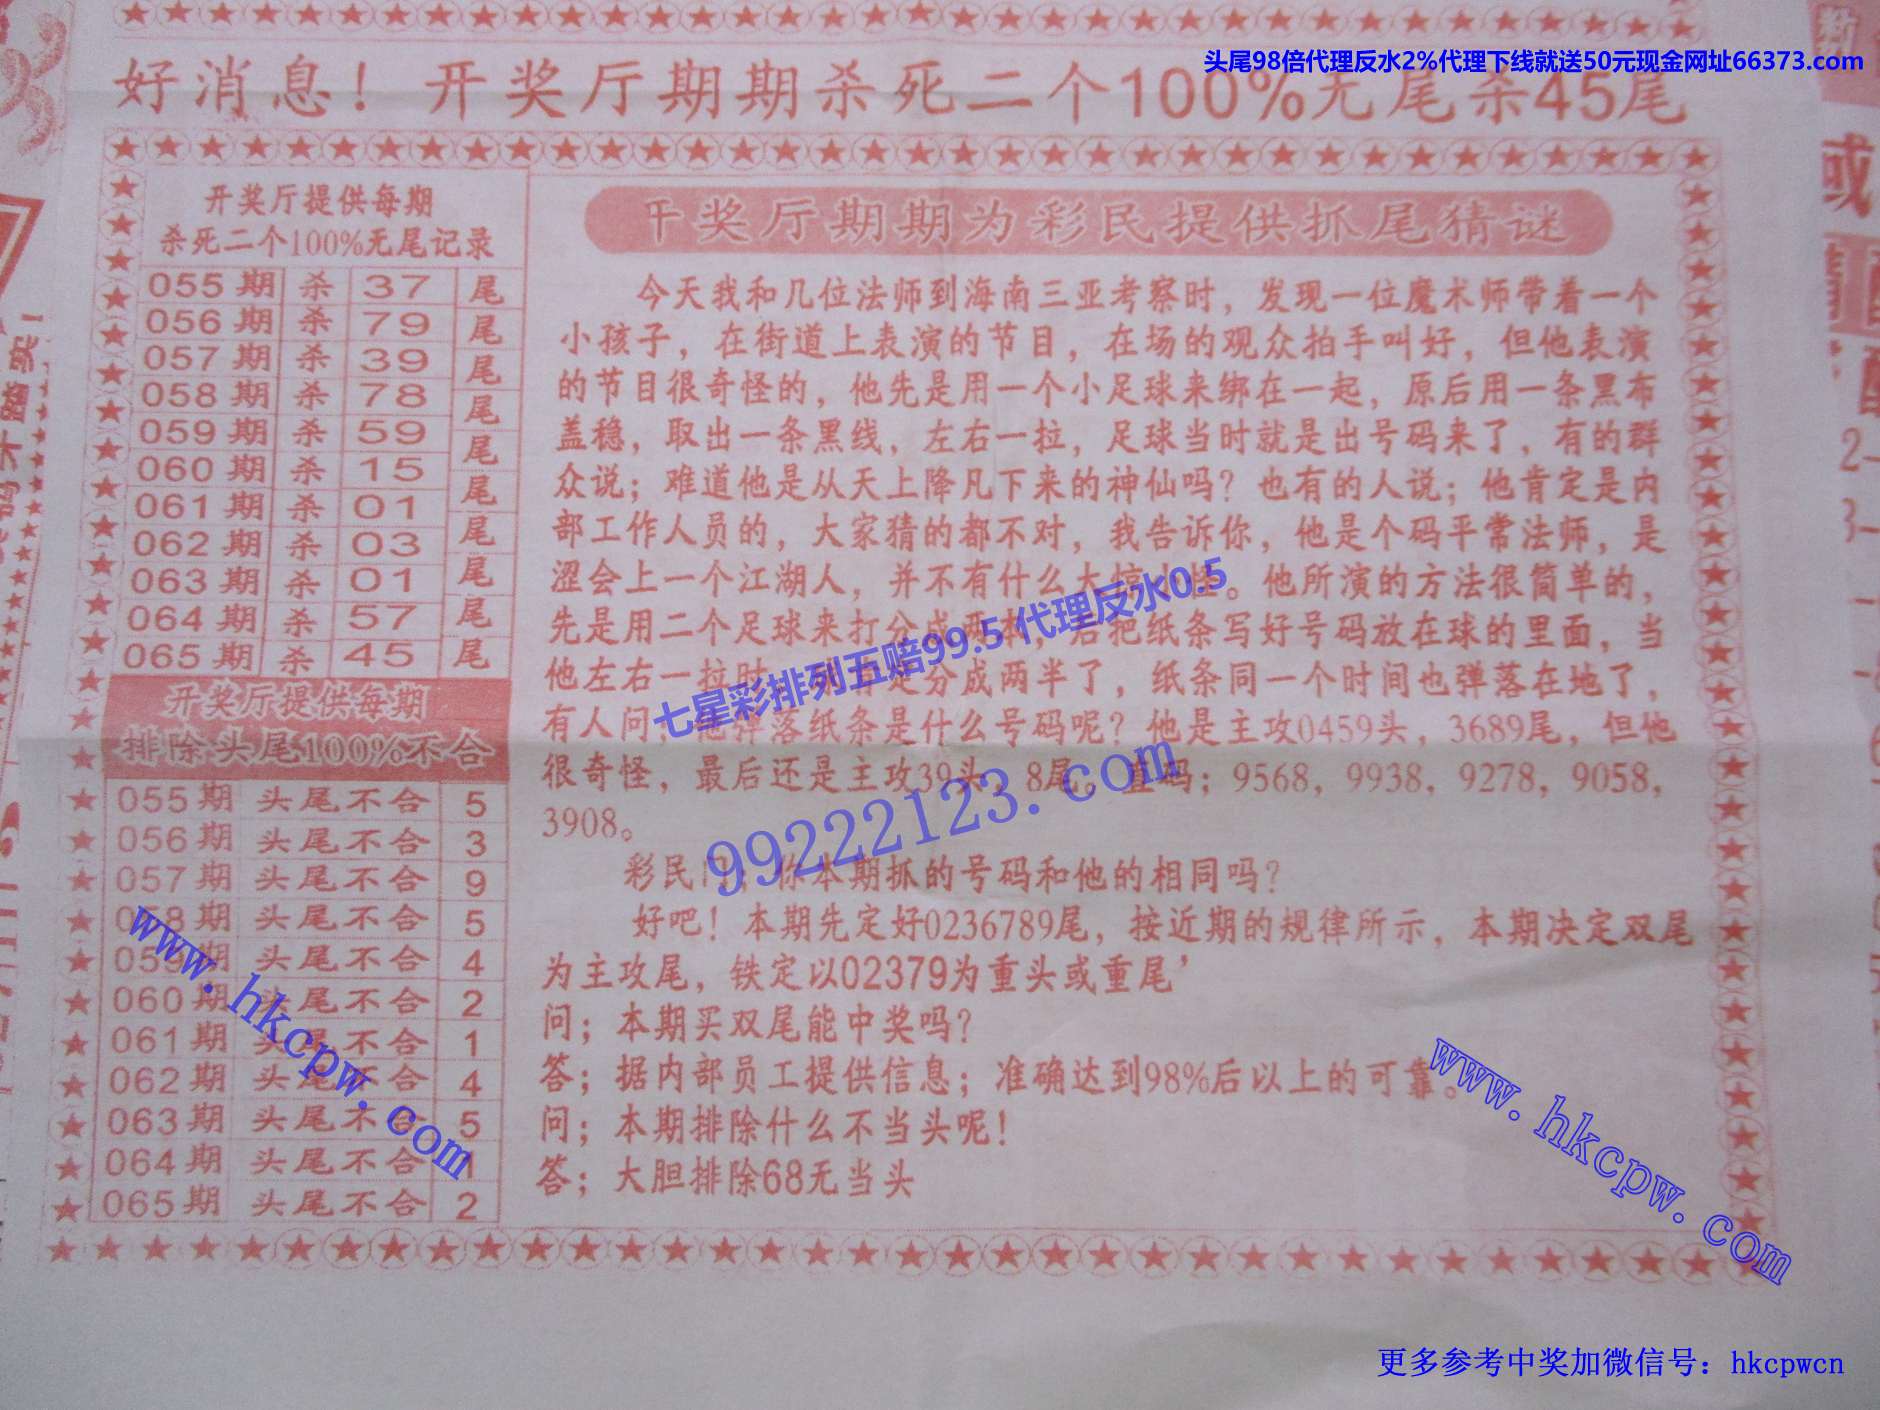 头尾98倍代理反水2%代理下线就送50元现金网址66373.com
好消息！开奖厅期期杀死二个100%无尾杀45尾
开奖厅提供每期
杀死二个100%无尾记录
055期 杀 37 尾
056期 杀 79 尾
057期 杀 39 尾
058期 杀 78 尾
059期 杀 59 尾
060期 杀 15 尾
061期 杀 01 尾
062期 杀 03 尾
063期 杀 01 尾
064期 杀 57 尾
065期 杀 45 尾
开奖厅提供每期
排除头尾100%不合
055期 头尾不合 5
056期 头尾不合 3
057期 头尾不合 9
058期 头尾不合 5
059期 头尾不合 4
060期 头尾不合 2
061期 头尾不合 1
062期 头尾不合 4
063期 头尾不合 5
064期 头尾不合 1
065期 头尾不合 2
奖厅期期为彩民提供抓尾猜谜
今天我和几位法师到海南三亚考察时，发现一位魔术师带着一个
小孩子，在街道上表演的节目，在场的观众拍手叫好，但他表演
的节目很奇怪的，他先是用一个小足球来绑在一起，原后用一条黑布
盖稳，取出一条黑线，左右一拉，足球当时就是出号码来了，有的群
众说；难道他是从天上降凡下来的神仙吗？也有的人说；他肯定是内
部工作人员的，大家猜的都不对，我告诉你，他是个码平常法师，是
涩会上一个江湖人，并不有什么大惊小怪。他所演的方法很简单的，
先是用二个足球来打分成两，后把纸条写好号码放在球的里面，当
他左右一拉时，是分成两半了，纸条同一个时间也弹落在地了，
有人问，他弹落纸条是什么号码呢？他是主攻0459头，3689尾，但他
很奇怪，最后还是主攻39头，8尾。直码；9568，9938，9278，9058，
3908。
彩民门，你本期抓的号码和他的相同吗？
好吧！本期先定好0236789尾，按近期的规律所示，本期决定双尾
为主攻尾，铁定以02379为重头或重尾’
问；本期买双尾能中奖吗？
答；据内部员工提供信息；准确达到98%后以上的可靠。
问；本期排除什么不当头呢！
答；大胆排除68无当头
七星彩排列五赔99.5 代理反水0.5
99222123.com
www.hkcpw.com
www.hkcpw.com
更多参考中奖加微信号：hkcpwcn